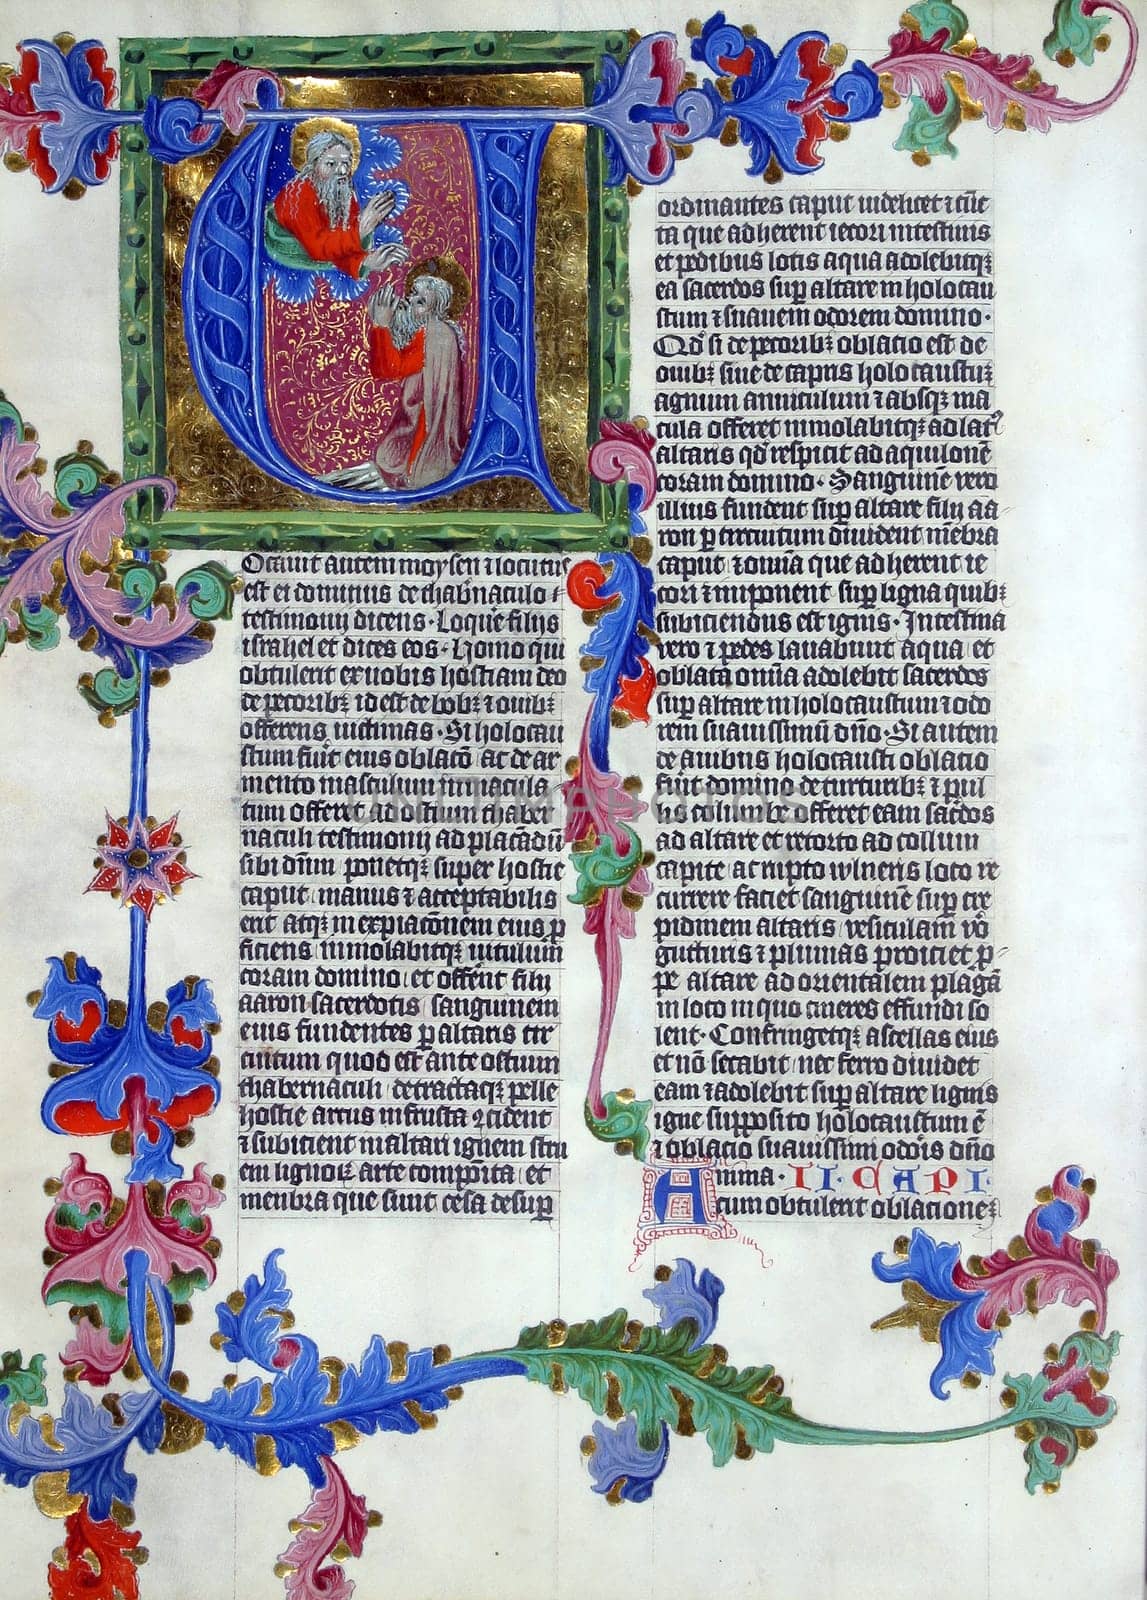 V
Ocauit autem moysen ⁊ locutus
est ei dominus de thab̄naculo
testimonij dicens · Loquere filijs
israhel et dices eos · Homo qui
obtulerit ex uobis hostiam deo
de pecoribꝫ id est de bobꝫ ⁊ ouibꝫ
offerens uictimas · Si holocau
stum fuīt eius oblacō ac de ar
mento masculum inmacula
tum offeret ad ostium thaber
naculi testimonij ad placādū
sibi dn̄m ponetqꝫ super hostie
caput manus ⁊ acceptabilis
erit atqꝫ in expiacōnem eius ꝓ
ficiens inmolabitqꝫ uitulum
coram domino et offēnt filij
aaron sacerdotis sanguinem
eius fundentes ꝑ altaris cir
cuitum quod est ante ostium
thabernaculi detractaqꝫ pelle
hostie artus in frusta ɔcident
⁊ subicient in altari ignem stru
em lignoꝝ ante composita et
menbra que sunt cesa desuꝑ
ordinantes caput uidelicet ⁊ cūc
ta que adherent iecori intestinis
et pedibus lotis aqua adolebitqꝫ
ea sacerdos suꝑ altare in holocau
stum ⁊ suauem odorem domino ·
Qd̄ si de pecoribꝫ oblacio est de
ouibꝫ siue de capris holocaustūꝫ
agnum anniculum ⁊ absqꝫ ma
cula offeret inmolabitqꝫ ad latꝰ
altaris qd̄ respicit ad aquilonē
coram domino · Sanguinē vero
illius fundent suꝑ altare filij aa
ron ꝑ circuitum diuident mēbra
caput ⁊ omīa que adherent ie
cori ⁊ inponent suꝑ ligna quibꝫ
subiciendus est ignis · Intestina
vero ⁊ pedes lauabunt aqua et
oblata omīa adolebit sacerdos
suꝑ altare in holocaustum ⁊ odo
rem suauissimū dn̄o · Si autem
de auibus holocausti oblacio
fūit domino de turturibꝫ ⁊ pul
lis columbe offeret eam sac̄dos
ad altare et retorto ad collum
capite ac rupto wlneris loco re
currere faciet sanguinē suꝑ cre
pidinem altaris vesiculam vō
gutturis ⁊ plumas proiciet ꝓ
pe altare ad orientalem plagā
in loco in quo cineres effundi so
lent · Confringetqꝫ ascellas eius
et nō secabit nec ferro diuidet
eam ⁊ adolebit suꝑ altare lignis
igne supposito holocaustum ē
⁊ oblacio suauissimi odōis dn̄o
Anima · II · CAPI ·
cum obtulerit oblacioneꝫ